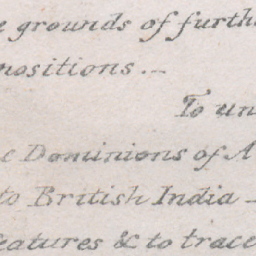 e grounds of furth
positions. —
To un
e Dominions of A
to British India —
eatures & to trace